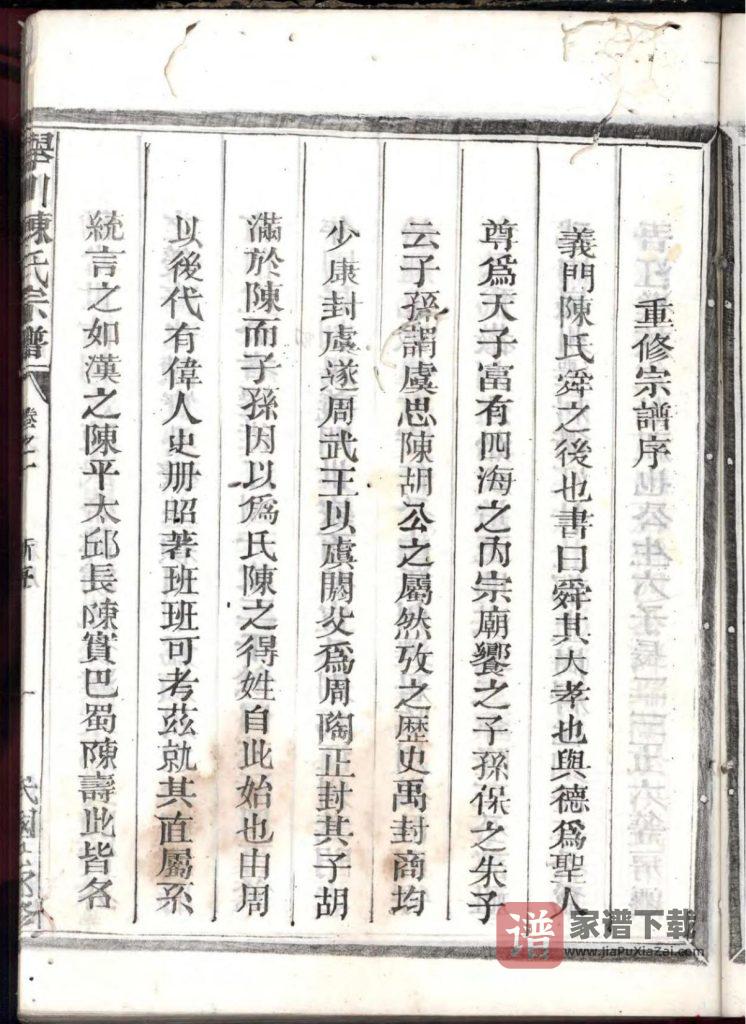 重修宗譜序
義門陳氏舜之後也書曰舜其大孝也與德爲聖人
尊爲天子富有四海之內宗廟饗之子孫保之朱子
云子孫謂虞思陳胡公之屬然攷之歷史禹封商均
少康封虞遂周武王以虞閼父爲周陶正封其子胡
滿於陳而子孫因以爲氏陳之得姓自此始也由周
以後代有偉人史册昭著班班可考茲就其直屬系
統言之如漢之陳平太邱長陳寔巴蜀陳壽此皆名
川陳氏宗譜
卷之一
新序
一
民國
谱
家谱下载
www.jiaPuXiaZai.com